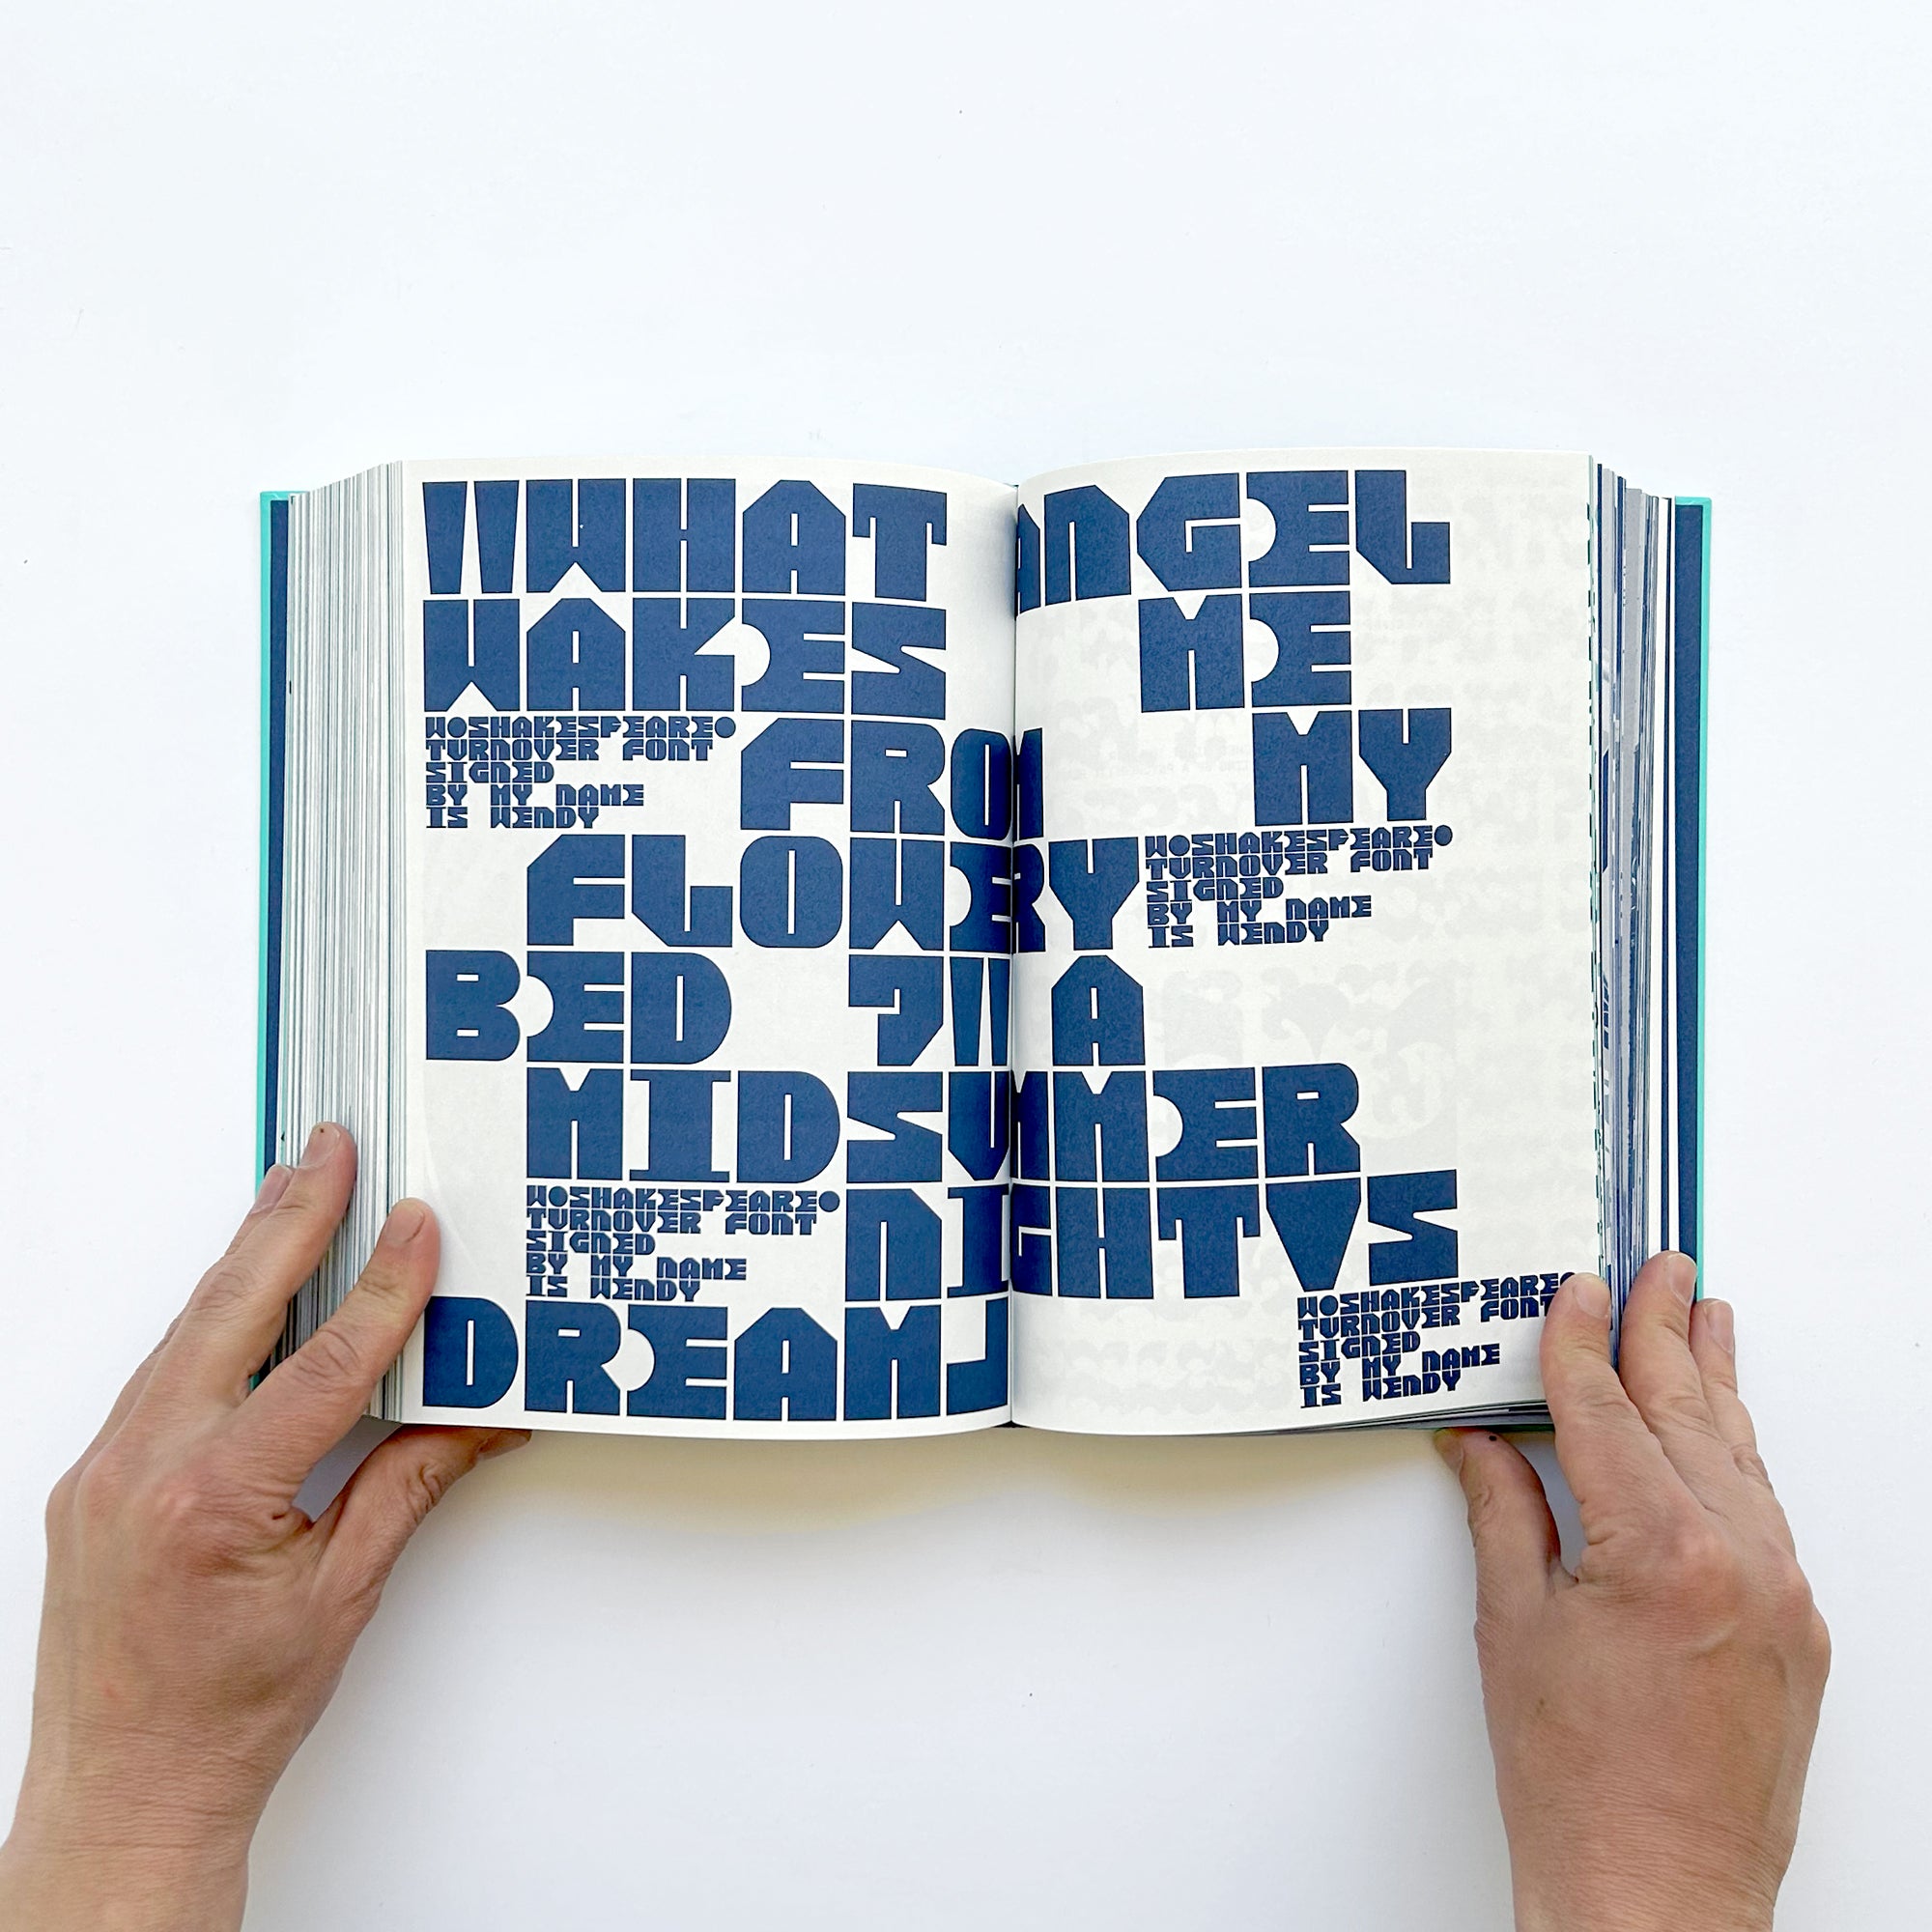 "WHAT ANGEL
WAKES ME
W•SHAKESPEARE•
TURNOVER FONT
SIGNED
BY MY NAME
IS WENDY
FROM MY
FLOWERY
W•SHAKESPEARE•
TURNOVER FONT
SIGNED
BY MY NAME
IS WENDY
BED ?" A
MIDSUMMER
W•SHAKESPEARE•
TURNOVER FONT
SIGNED
BY MY NAME
IS WENDY
NIGHT'S
DREAM
W•SHAKESPEARE•
TURNOVER FONT
SIGNED
BY MY NAME
IS WENDY